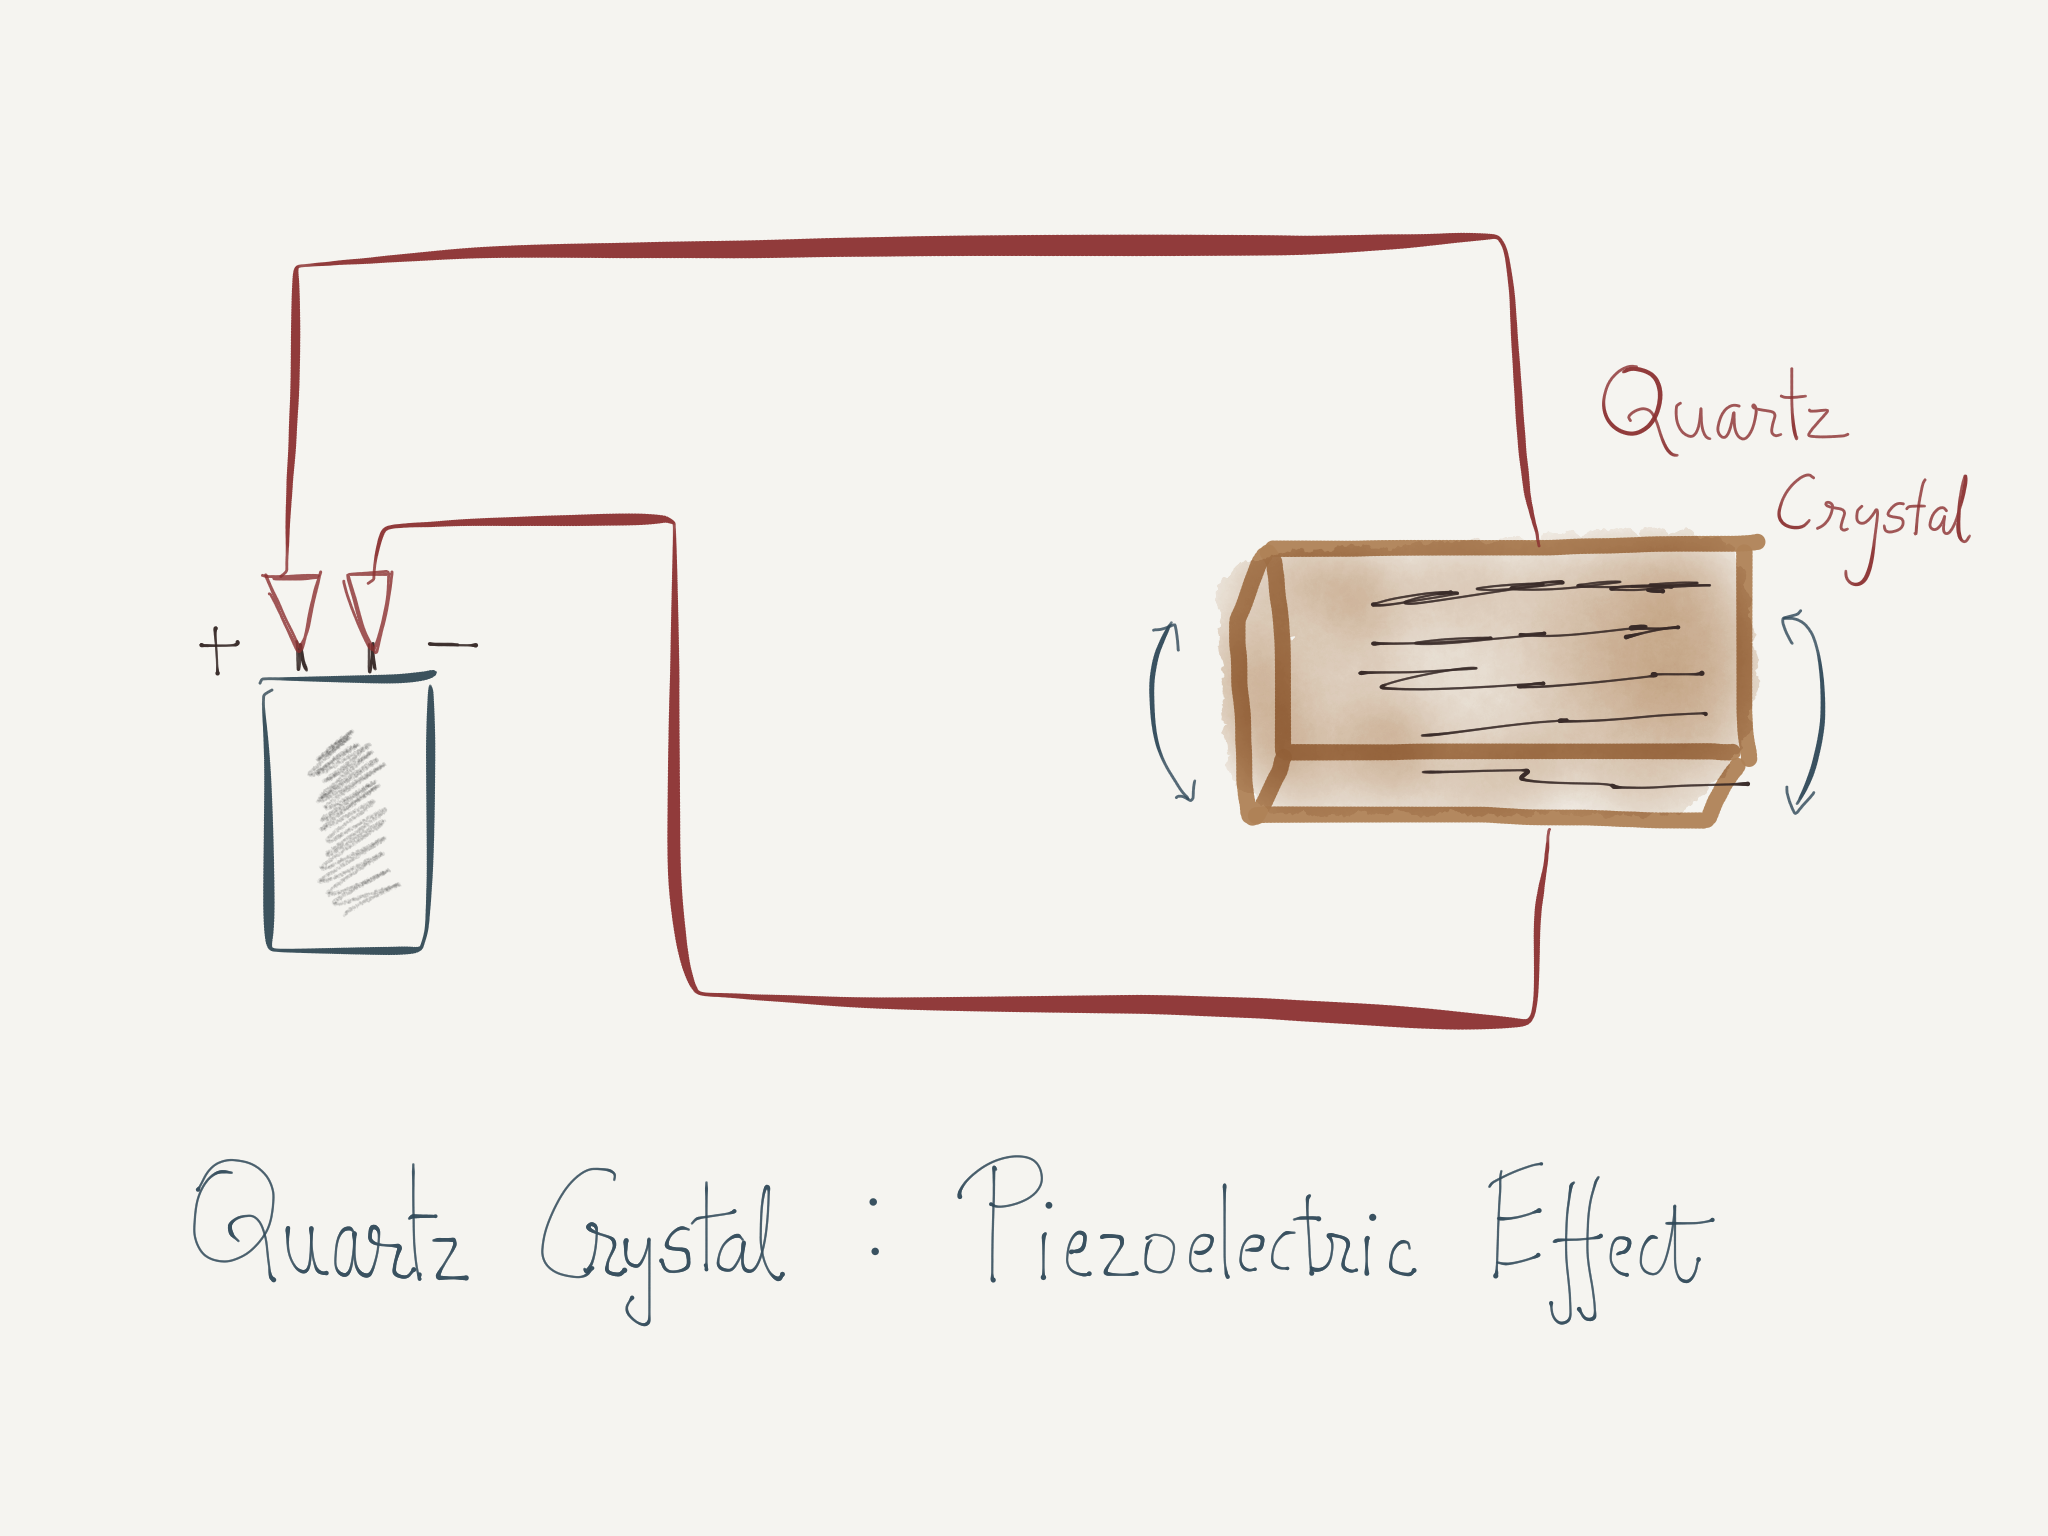 Quartz
Crystal
+ -
Quartz Crystal : Piezoelectric Effect